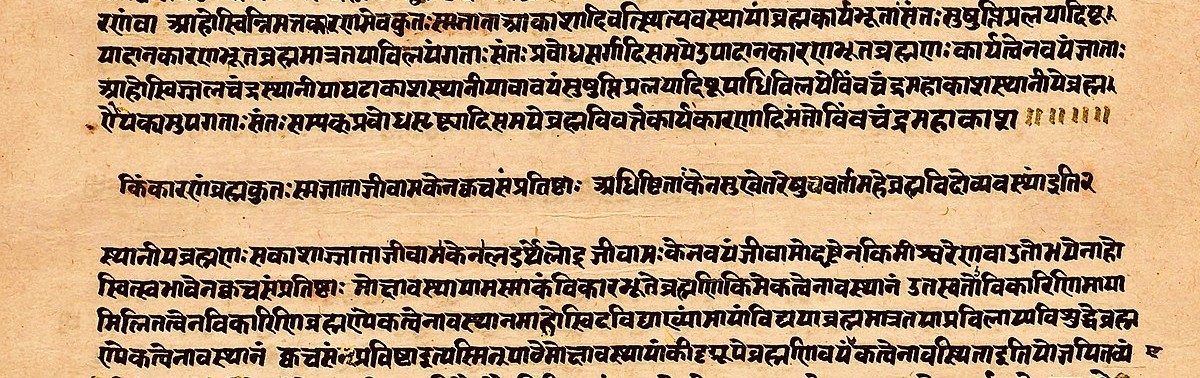 रणंवा आहोस्विन्निमित्तकारणमेवकुतःस्मजाताआकाशादिवन्नित्यत्यवस्थायांब्रह्मकार्यभूताःसंतःसुषुप्तिप्रलयादिषू
पादानकारणभूतब्रह्ममात्रतयाविलयंगताःसंतःप्रबोधसर्गादिसमयेउपादानकारणभूतब्रह्मणःकार्यत्वेनवयंजाताः
आहोस्विज्जलचंद्रस्थानीयाघटाकाशस्थानीयावावयंसुषुप्तिप्रलयादिषूपाधिविलयेबिंबचंद्रमहाकाशस्थानीयेब्रह्म
णैक्यमुपगताःसंतःसम्यक्प्रबोधसृष्ट्यादिसमयेब्रह्मविवर्त्तकार्यकारणादिमंतोबिंबचंद्रमहाकाश ॥॥॥
किंकारणंब्रह्मकुतःस्मजाताजीवामकेनक्वचसंप्रतिष्ठाः अधिष्ठिताःकेनसुखेतरेषुवर्तामहेब्रह्मविदोव्यवस्थां इति१
स्थानीयब्रह्मणःसकाशाज्जाताजीवामकेन जीवामःकेनवयंजीवामोदृष्टेनकिमीश्वरेणवाउतोभयेनाहो
स्वित्स्वभावेनक्वचसंप्रतिष्ठाः मोक्षावस्थायामस्माकंविकारभूतेब्रह्मणिकिमेकत्वेनावस्थानं उतस्वतोविकारिणिमाया
मिलितत्वेनविकारिणिब्रह्मण्येकत्वेनावस्थानमाहोस्विदविद्याख्यांमायांविद्ययाब्रह्ममात्रतयाप्रविलाप्यविशुद्धेब्रह्म
ण्येकत्वेनावस्थानं क्वचसंप्रविष्ठाइत्यस्मिन्पाठेमोक्षावस्थायांकीदृग्रूपेब्रह्मणिवयंएकत्वेनावस्थिताइतियोजयितव्यं